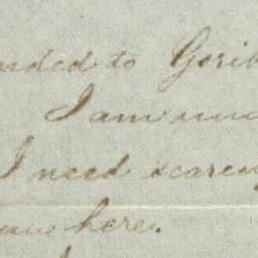 nded to Gorib
I am
I need scarce
here.